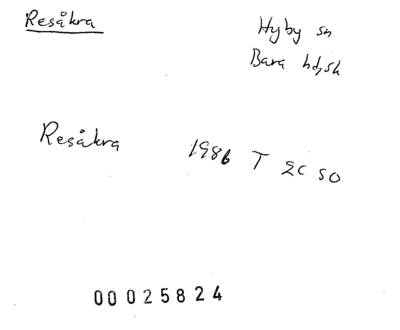 Resåkra
Hyby sn
Bara hd, sk
Resåkra 1986 T EC SO
00025824